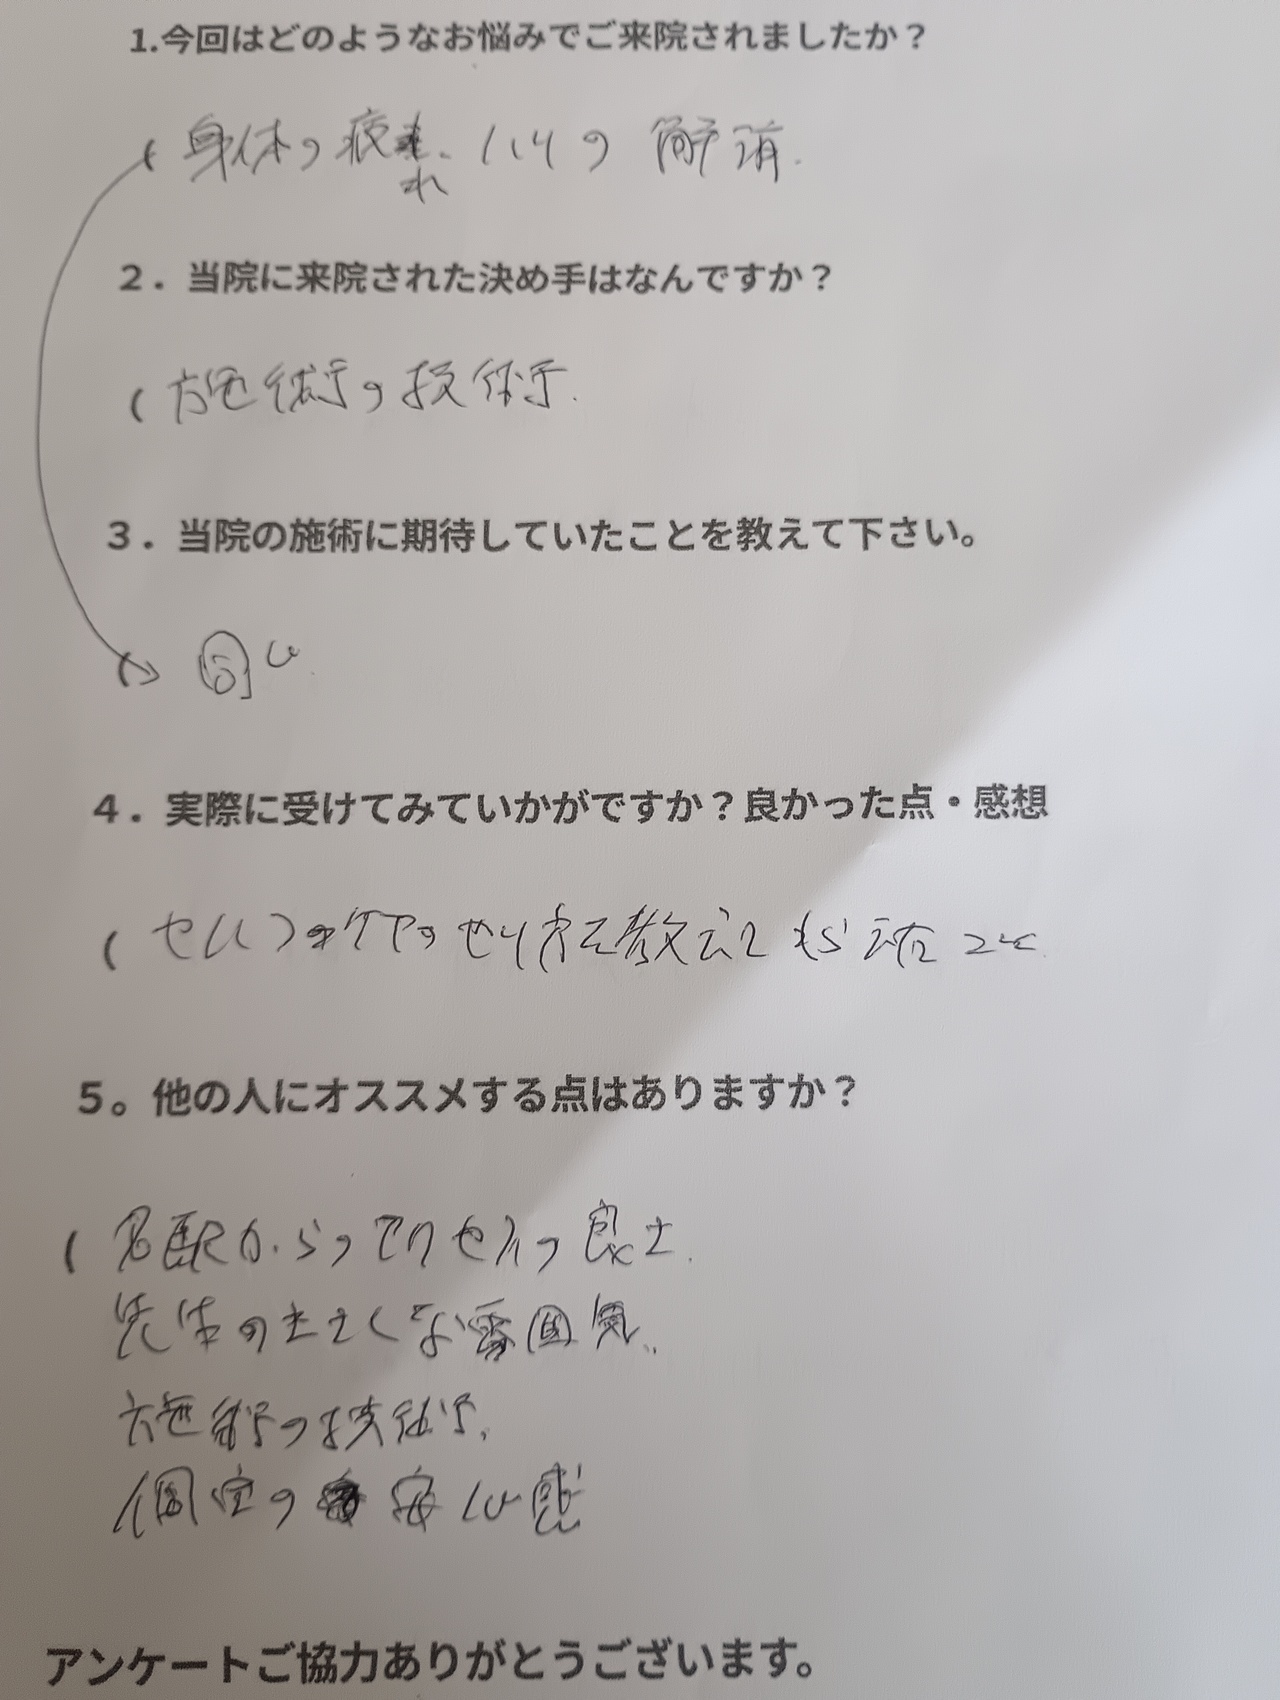 1.今回はどのようなお悩みでご来院されましたか？
( 身体の疲れ、ハリの解消.
２．当院に来院された決め手はなんですか？
( 施術の技術.
３．当院の施術に期待していたことを教えて下さい。
同じ.
４．実際に受けてみていかがですか？良かった点・感想
( セルフケアのやり方を教えてもらえたこと.
５。他の人にオススメする点はありますか？
( 名駅からのアクセスの良さ.
先生の気さくな雰囲気.
施術の技術.
個室の安心感
アンケートご協力ありがとうございます。